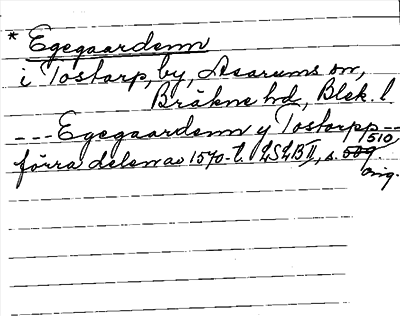 * Egegaardenn
i Tostarp, by, Asarums sn,
Bräkne hd, Blek. l.
--- Egegaardenn y Tostorpp ---
förra delen av 1570-t. LSLB II, s. 510
orig.